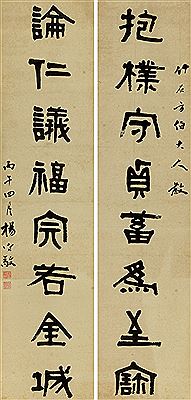 竹石方伯大人教
抱樸守貞蓄為至寶
論仁議福完若金城
丙午四月楊守敬